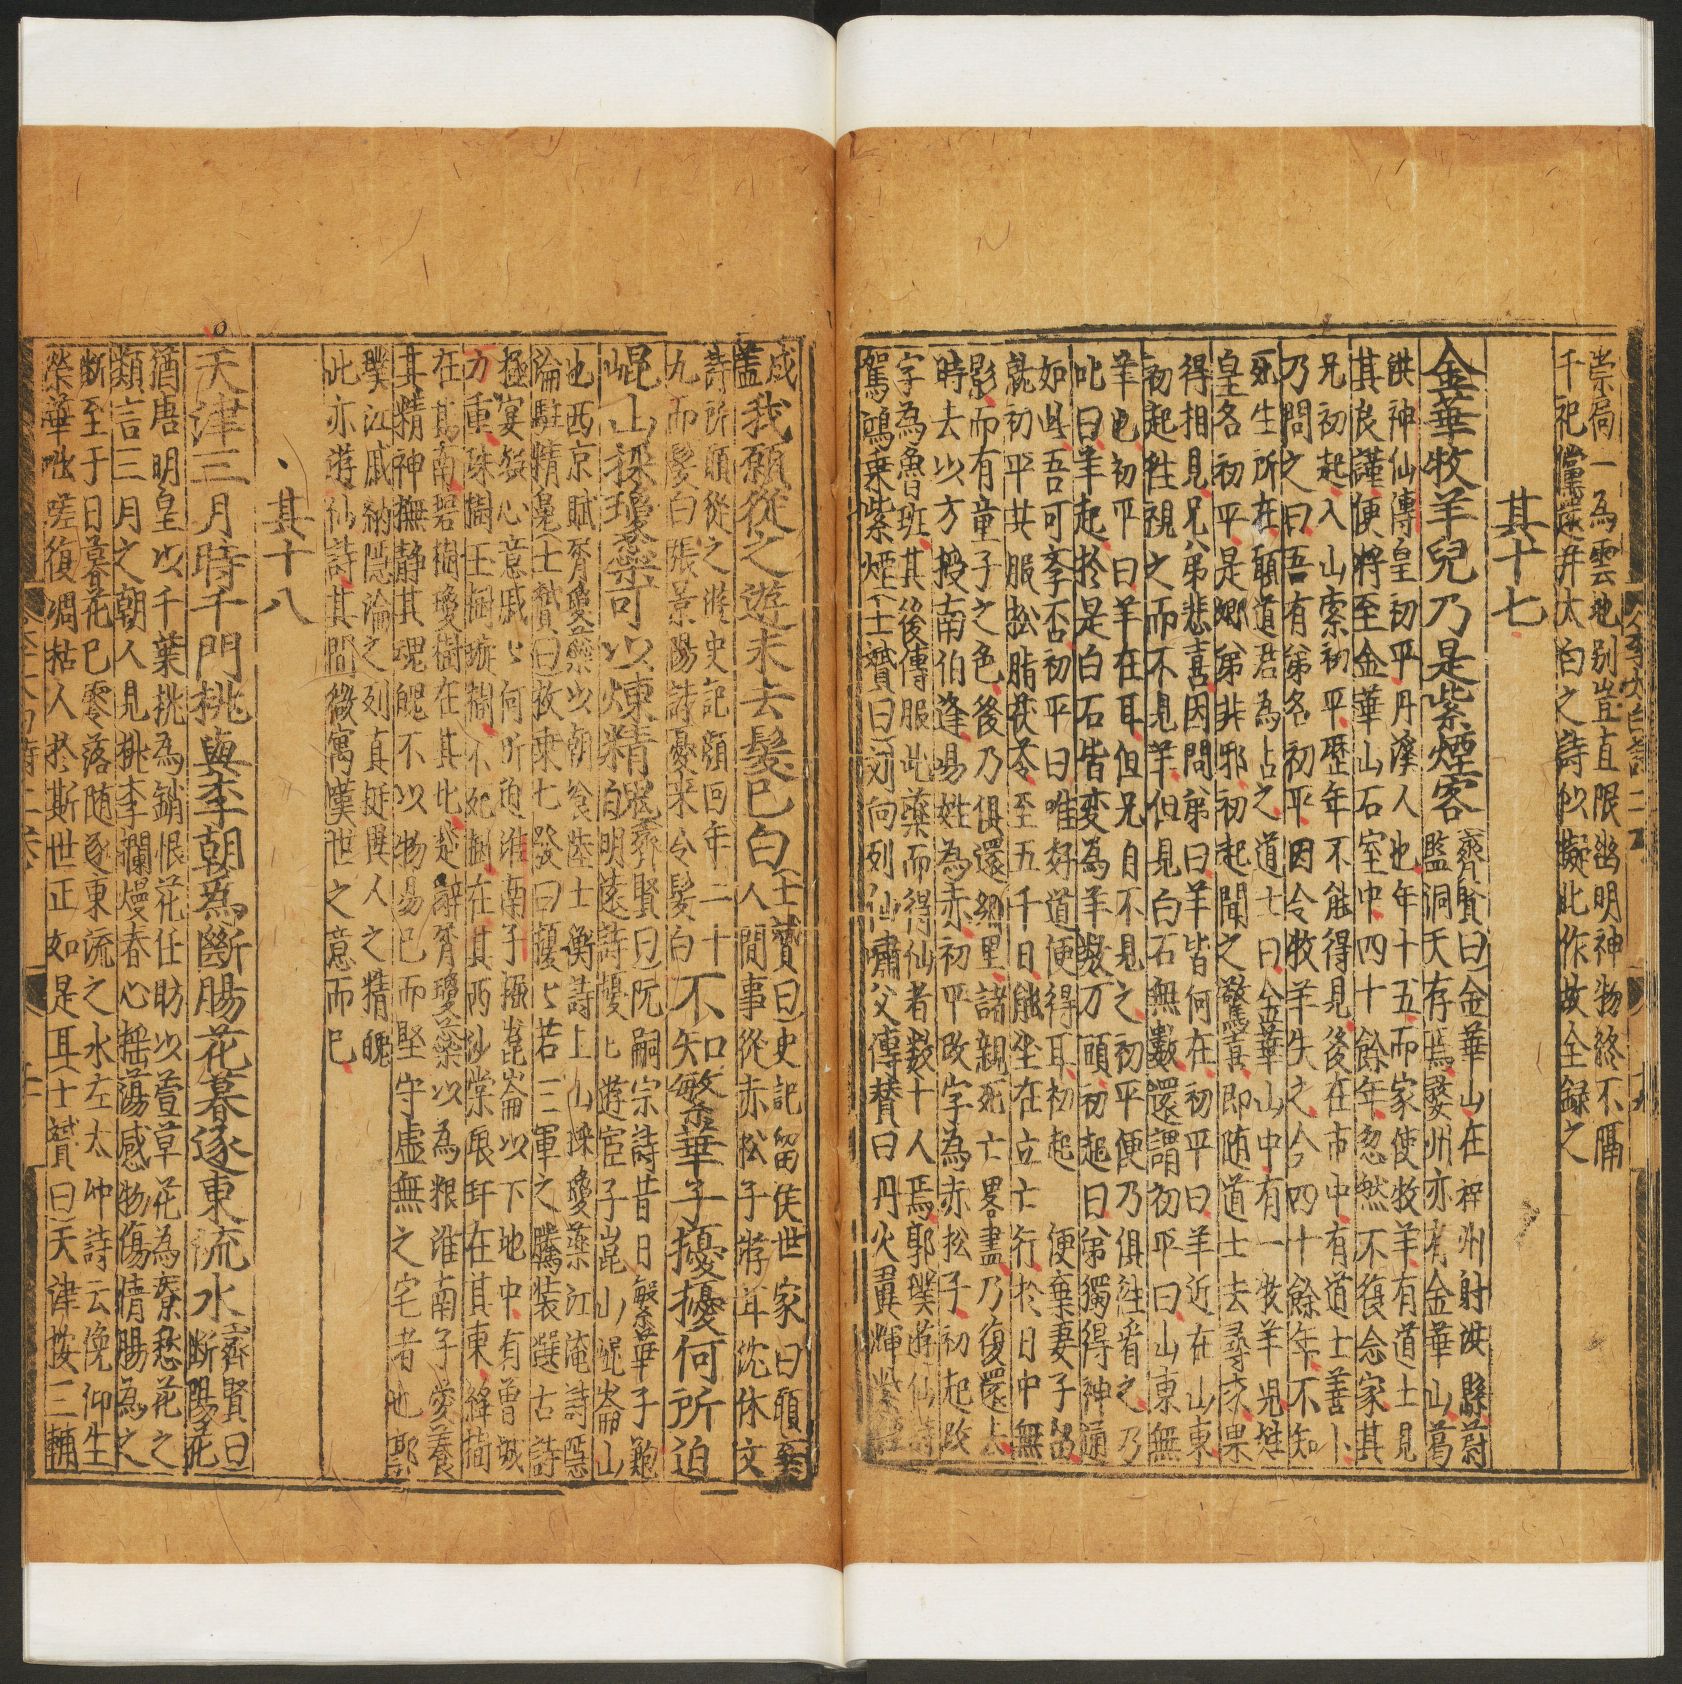 崇局一為雲地別豈直限幽明神物終不隔
千祀儻還并太白之詩似擬此作故全録之
其十七
金華牧羊兒乃是紫煙客
齊賢曰金華山在梓州射洪縣蔚
藍洞天存焉婺州亦有金華山葛
洪神仙傳皇初平丹溪人也年十五而家使牧羊有道士見
其良謹便將至金華山石室中四十餘年忽然不復念家其
兄初起入山索初平歷年不能得見後在市中有道士善卜
乃問之曰吾有弟名初平因令牧羊失之今四十餘年不知
死生所在願道君為占之道士曰金華山中有一牧羊兒姓
皇名初平是卿弟非邪初起聞之驚喜即随道士去尋求果
得相見兄弟悲喜因問弟曰羊皆何在初平曰羊近在山東
初起往視之而不見羊但見白石無數還謂初平曰山東無
羊也初平曰羊在耳但兄自不見之初平便乃俱往看之乃
叱曰羊起於是白石皆変為羊數万頭初起曰弟獨得神通
如此吾可學否初平曰唯好道便得耳初起便棄妻子留
就初平共服松脂茯苓至五千日能坐在立亡行於日中無
影而有童子之色後乃俱還鄉里諸親死亡畧盡乃復還去
時去以方授南伯逢易姓為赤初平改字為赤松子初起改
字為魯班其後傳服此藥而得仙者數十人焉郭璞遊仙詩
駕鴻乗紫煙士贇曰列向列仙嘯父傳賛曰丹火翼輝紫
我願從之遊未去髮已白
士贇曰史記留侯世家曰願棄
人間事從赤松子游耳沈休文
詩所願從之游史記顔回年二十
九而髮白張景陽詩憂来令髮白
不知繁華子擾擾何所迫
崐山採瓊蘂可以煉精魄
齊賢曰阮嗣宗詩昔日繁華子鮑
明遠詩擾擾遊宦子崑山崐崙山
也西京賦屑瓊蘂以朝飡陸士衡詩上山採瓊蘂江淹詩隱
淪駐精魄士贇曰枚乗七發曰擾擾若三軍之騰装選古詩
極宴娱心意戚戚何所迫淮南子掘崑崙以下地中有曽城
九重珠樹玉樹璇樹不死樹在其西沙棠琅玕在其東絳樹
在其南碧樹瑶樹在其北楚辭屑瓊蘂以為粮淮南子愛養
其精神撫静其魂魄不以物易已而堅守虚無之宅者也郭
璞江賦納隱淪之列真挺異人之精魄
此亦遊仙詩其間微寓嘆世之意而已
其十八
天津三月時千門桃與李朝為斷腸花暮逐東流水
齊賢曰
斷腸花
猶唐明皇以千葉桃為銷恨花任昉以萱草花為療愁花之
類言三月之朝人見桃李爛熳春心揺蕩感物傷情腸為之
斷至于日暮花已零落随逐東流之水左太冲詩云俛仰生
榮華咄嗟復凋枯人於斯世正如是耳士贇曰天津按三輔